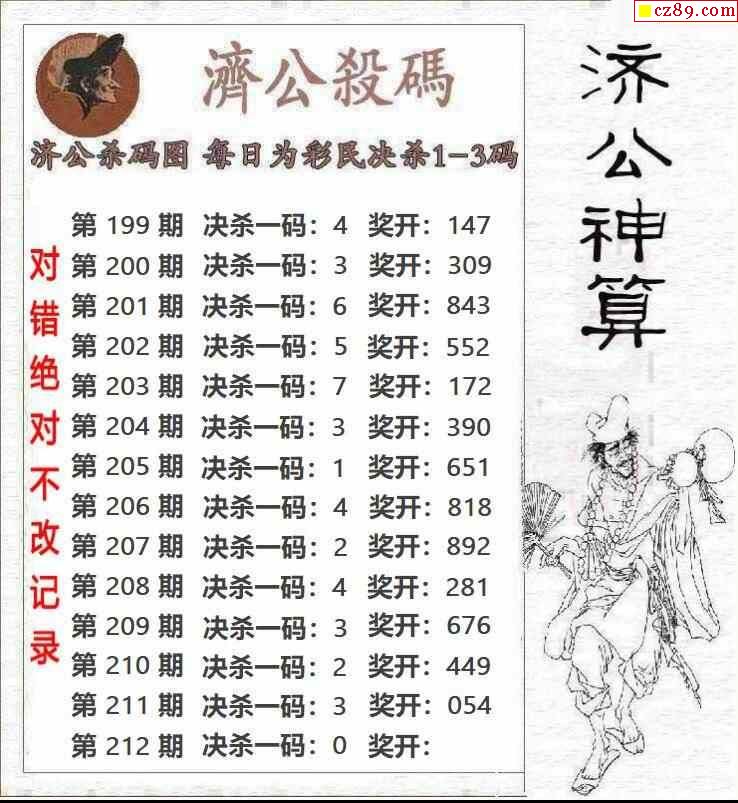 cz89.com
濟公殺碼
济公杀码图 每日为彩民决杀1-3码
第 199 期 决杀一码：4 奖开：147
第 200 期 决杀一码：3 奖开：309
第 201 期 决杀一码：6 奖开：843
第 202 期 决杀一码：5 奖开：552
第 203 期 决杀一码：7 奖开：172
第 204 期 决杀一码：3 奖开：390
第 205 期 决杀一码：1 奖开：651
第 206 期 决杀一码：4 奖开：818
第 207 期 决杀一码：2 奖开：892
第 208 期 决杀一码：4 奖开：281
第 209 期 决杀一码：3 奖开：676
第 210 期 决杀一码：2 奖开：449
第 211 期 决杀一码：3 奖开：054
第 212 期 决杀一码：0 奖开：
对错绝对不改记录
济公神算